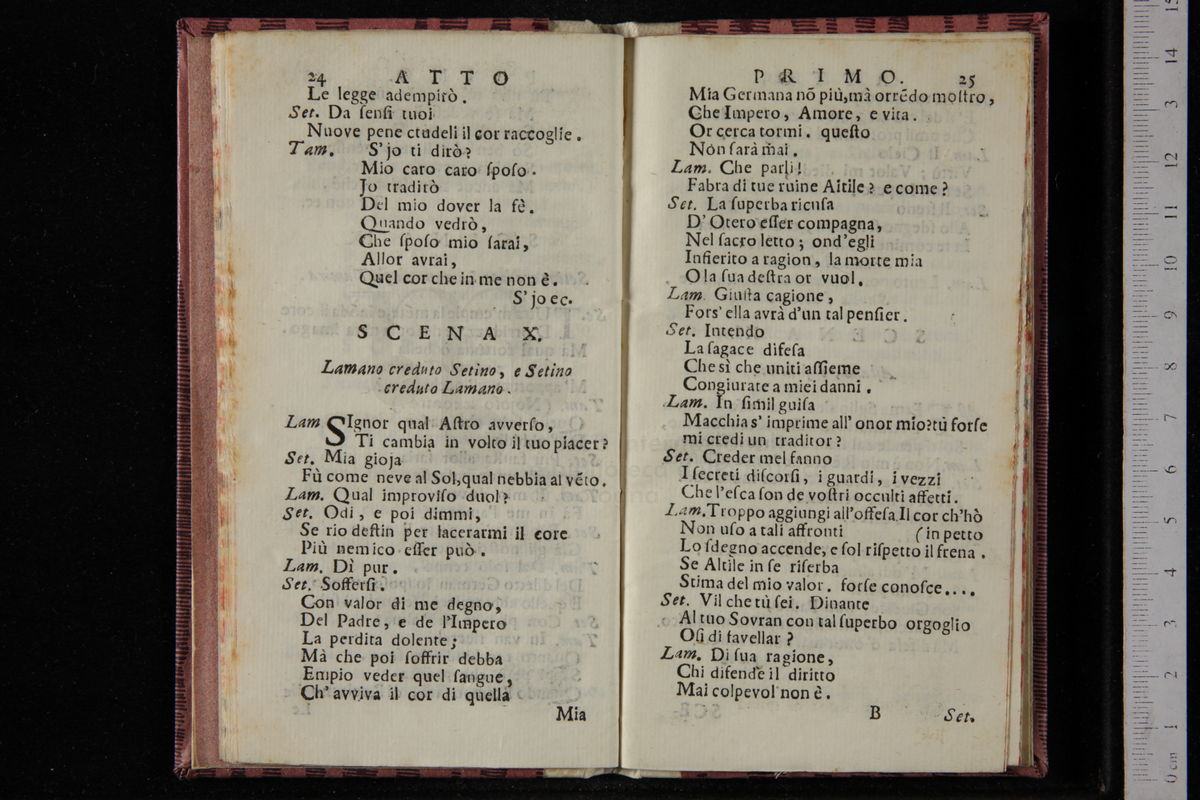 24 ATTO
Le legge adempirò.
Set. Da ſenſi tuoi
Nuove pene ctudeli il cor raccoglie.
Tam. S'jo ti dirò?
Mio caro caro ſpoſo.
Jo tradirò
Del mio dover la fè.
Quando vedrò,
Che ſpoſo mio ſarai,
Allor avrai,
Quel cor che in me non è.
S'jo ec.
SCENA X.
Lamano creduto Setino, e Setino
creduto Lamano.
Lam SIgnor qual Aſtro avverſo,
Ti cambia in volto il tuo piacer?
Set. Mia gioja
Fù come neve al Sol, qual nebbia al vẽto.
Lam. Qual improviſo duol?
Set. Odi, e poi dimmi,
Se rio deſtin per lacerarmi il core
Più nemico eſſer può.
Lam. Dì pur.
Set. Sofferſi.
Con valor di me degno,
Del Padre, e de l'Impero
La perdita dolente;
Mà che poi ſoffrir debba
Empio veder quel ſangue,
Ch'avviva il cor di quella
Mia
PRIMO. 25
Mia Germana nõ più, mà orrẽdo moſtro,
Che Impero, Amore, e vita.
Or cerca tormi. queſto
Non ſarà mai.
Lam. Che parli!
Fabra di tue ruine Altile? e come?
Set. La ſuperba ricuſa
D'Otero eſſer compagna,
Nel ſacro letto; ond'egli
Inſierito a ragion, la morte mia
O la ſua deſtra or vuol.
Lam. Giuſta cagione,
Fors'ella avrà d'un tal penſier.
Set. Intendo
La ſagace difeſa
Che sì che uniti aſſieme
Congiurate a miei danni.
Lam. In ſimil guiſa
Macchia s'imprime all'onor mio? tù forſe
mi credi un traditor?
Set. Creder mel fanno
I ſecreti diſcorſi, i guardi, i vezzi
Che l'eſca ſon de voſtri occulti affetti.
Lam. Troppo aggiungi all'offeſa. Il cor ch'hò
Non uſo a tali affronti (in petto
Lo ſdegno accende, e ſol riſpetto il frena.
Se Altile in ſe riſerba
Stima del mio valor. forſe conoſce....
Set. Vil che tù ſei. Dinante
Al tuo Sovran con tal ſuperbo orgoglio
Oſi di favellar?
Lam. Di ſua ragione,
Chi difende il diritto
Mai colpevol non è.
B Set.